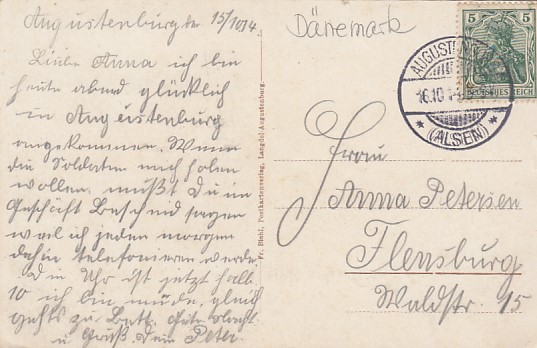 Augustenburg den 15/10 14
Liebe Anna ich bin
heute abend glücklich
in Augustenburg
angekommen. Wenn
die Soldaten mich holen
wollen, mußt Du im
Geschäft Bescheid sagen
weil ich jeden morgen
dahin telefonieren werde.
Die Uhr ist jetzt halb
10 ich bin müde, gleich
gehts zu Bett. Gute Nacht
u Gruß Dein Peter.
Dänemark
5 5
DEUTSCHES REICH
AUGUSTENBURG
16.10
* (ALSEN) *
Fr. Biehl, Postkartenverlag, Langdel-Augustenburg.
Frau
Anna Petersen
Flensburg
Waldstr. 15